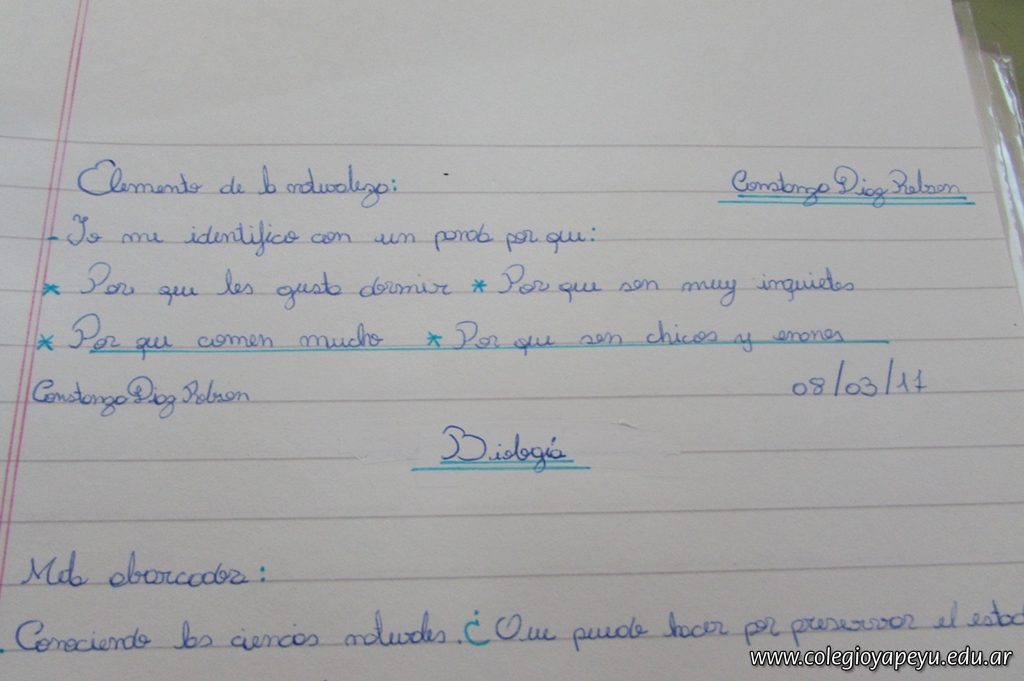 Elemento de la naturaleza:
Constanza Diaz Rebson
- Yo me identifico con un panda por que:
* Por que les gusta dormir * Por que son muy inquietos
* Por que comen mucho * Por que son chicos y enones
Constanza Diaz Rebson 08/03/11
Biología
Mda abarcador:
Conociendo las ciencias naturales. ¿Que puedo hacer por preservar el estado
www.colegioyapeyu.edu.ar